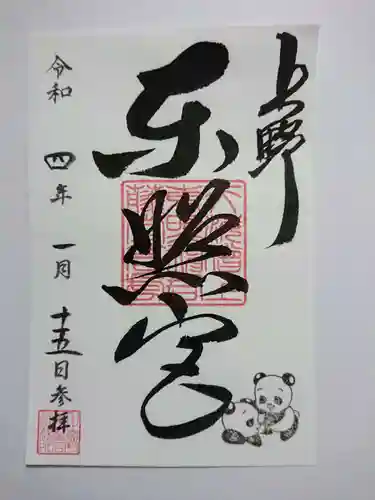 上野
东照宮
令和四年一月十五日参拝